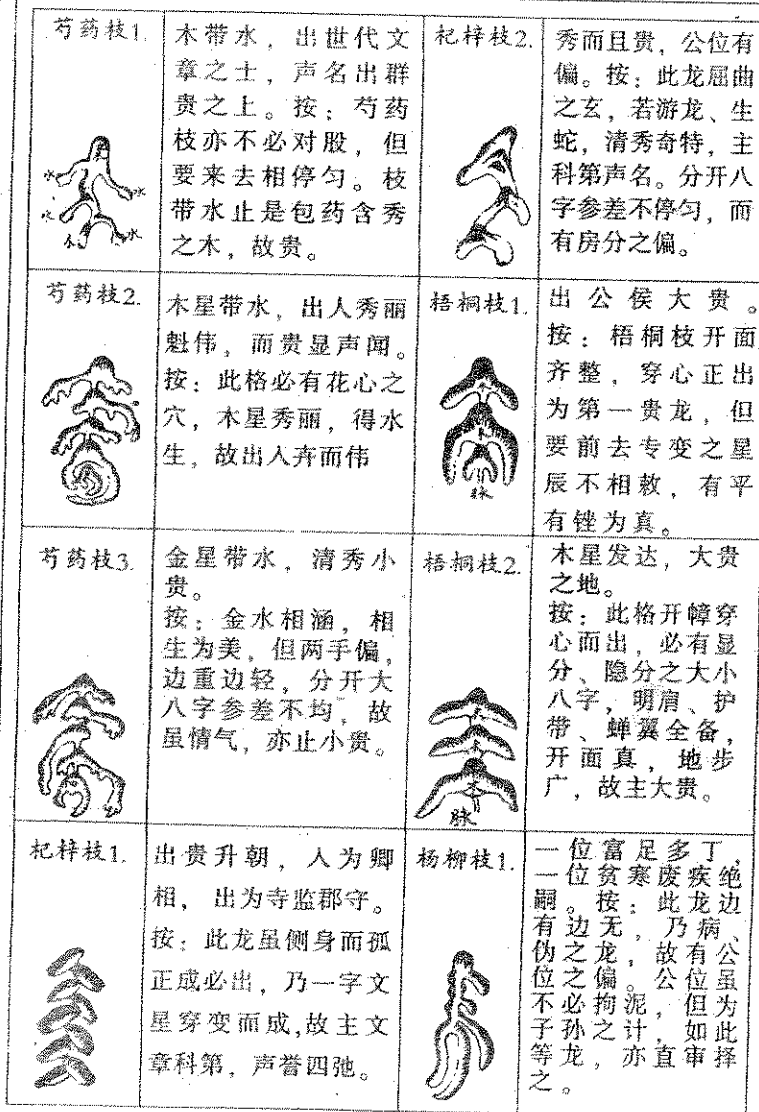 芍药枝1.
水
水
水
水
木
木带水，出世代文
章之士，声名出群
贵之上。按：芍药
枝亦不必对股，但
要来去相停匀。枝
带水止是包药含秀
之木，故贵。
杞梓枝2.
秀而且贵，公位有
偏。按：此龙屈曲
之玄，若游龙、生
蛇，清秀奇特，主
科第声名。分开八
字参差不停匀，而
有房分之偏。
芍药枝2.
木星带水，出人秀丽
魁伟，而贵显声闻。
按：此格必有花心之
穴，木星秀丽，得水
生，故出人卉而伟
梧桐枝1.
脉
出公侯大贵。
按：梧桐枝开面
齐整，穿心正出
为第一贵龙，但
要前去专变之星
辰不相敕，有平
有锉为真。
芍药枝3.
金星带水，清秀小
贵。
按：金水相涵，相
生为美，但两手偏，
边重边轻，分开大
八字参差不均，故
虽情气，亦止小贵。
梧桐枝2.
木
脉
木星发达，大贵
之地。
按：此格开幛穿
心而出，必有显
分、隐分之大小
八字，明肩、护
带、蝉翼全备，
开面真，地步
广，故主大贵。
杞梓枝1.
出贵升朝，人为卿
相，出为寺监郡守。
按：此龙虽侧身而孤
正成必出，乃一字文
星穿变而成，故主文
章科第，声誉四弛。
杨柳枝1.
一位富足多丁，
一位贫寒废疾绝
嗣。按：此龙边
有边无，乃病、
伪之龙，故有公
位之偏。公位虽
不必拘泥，但为
子孙之计，如此
等龙，亦直审择
之。